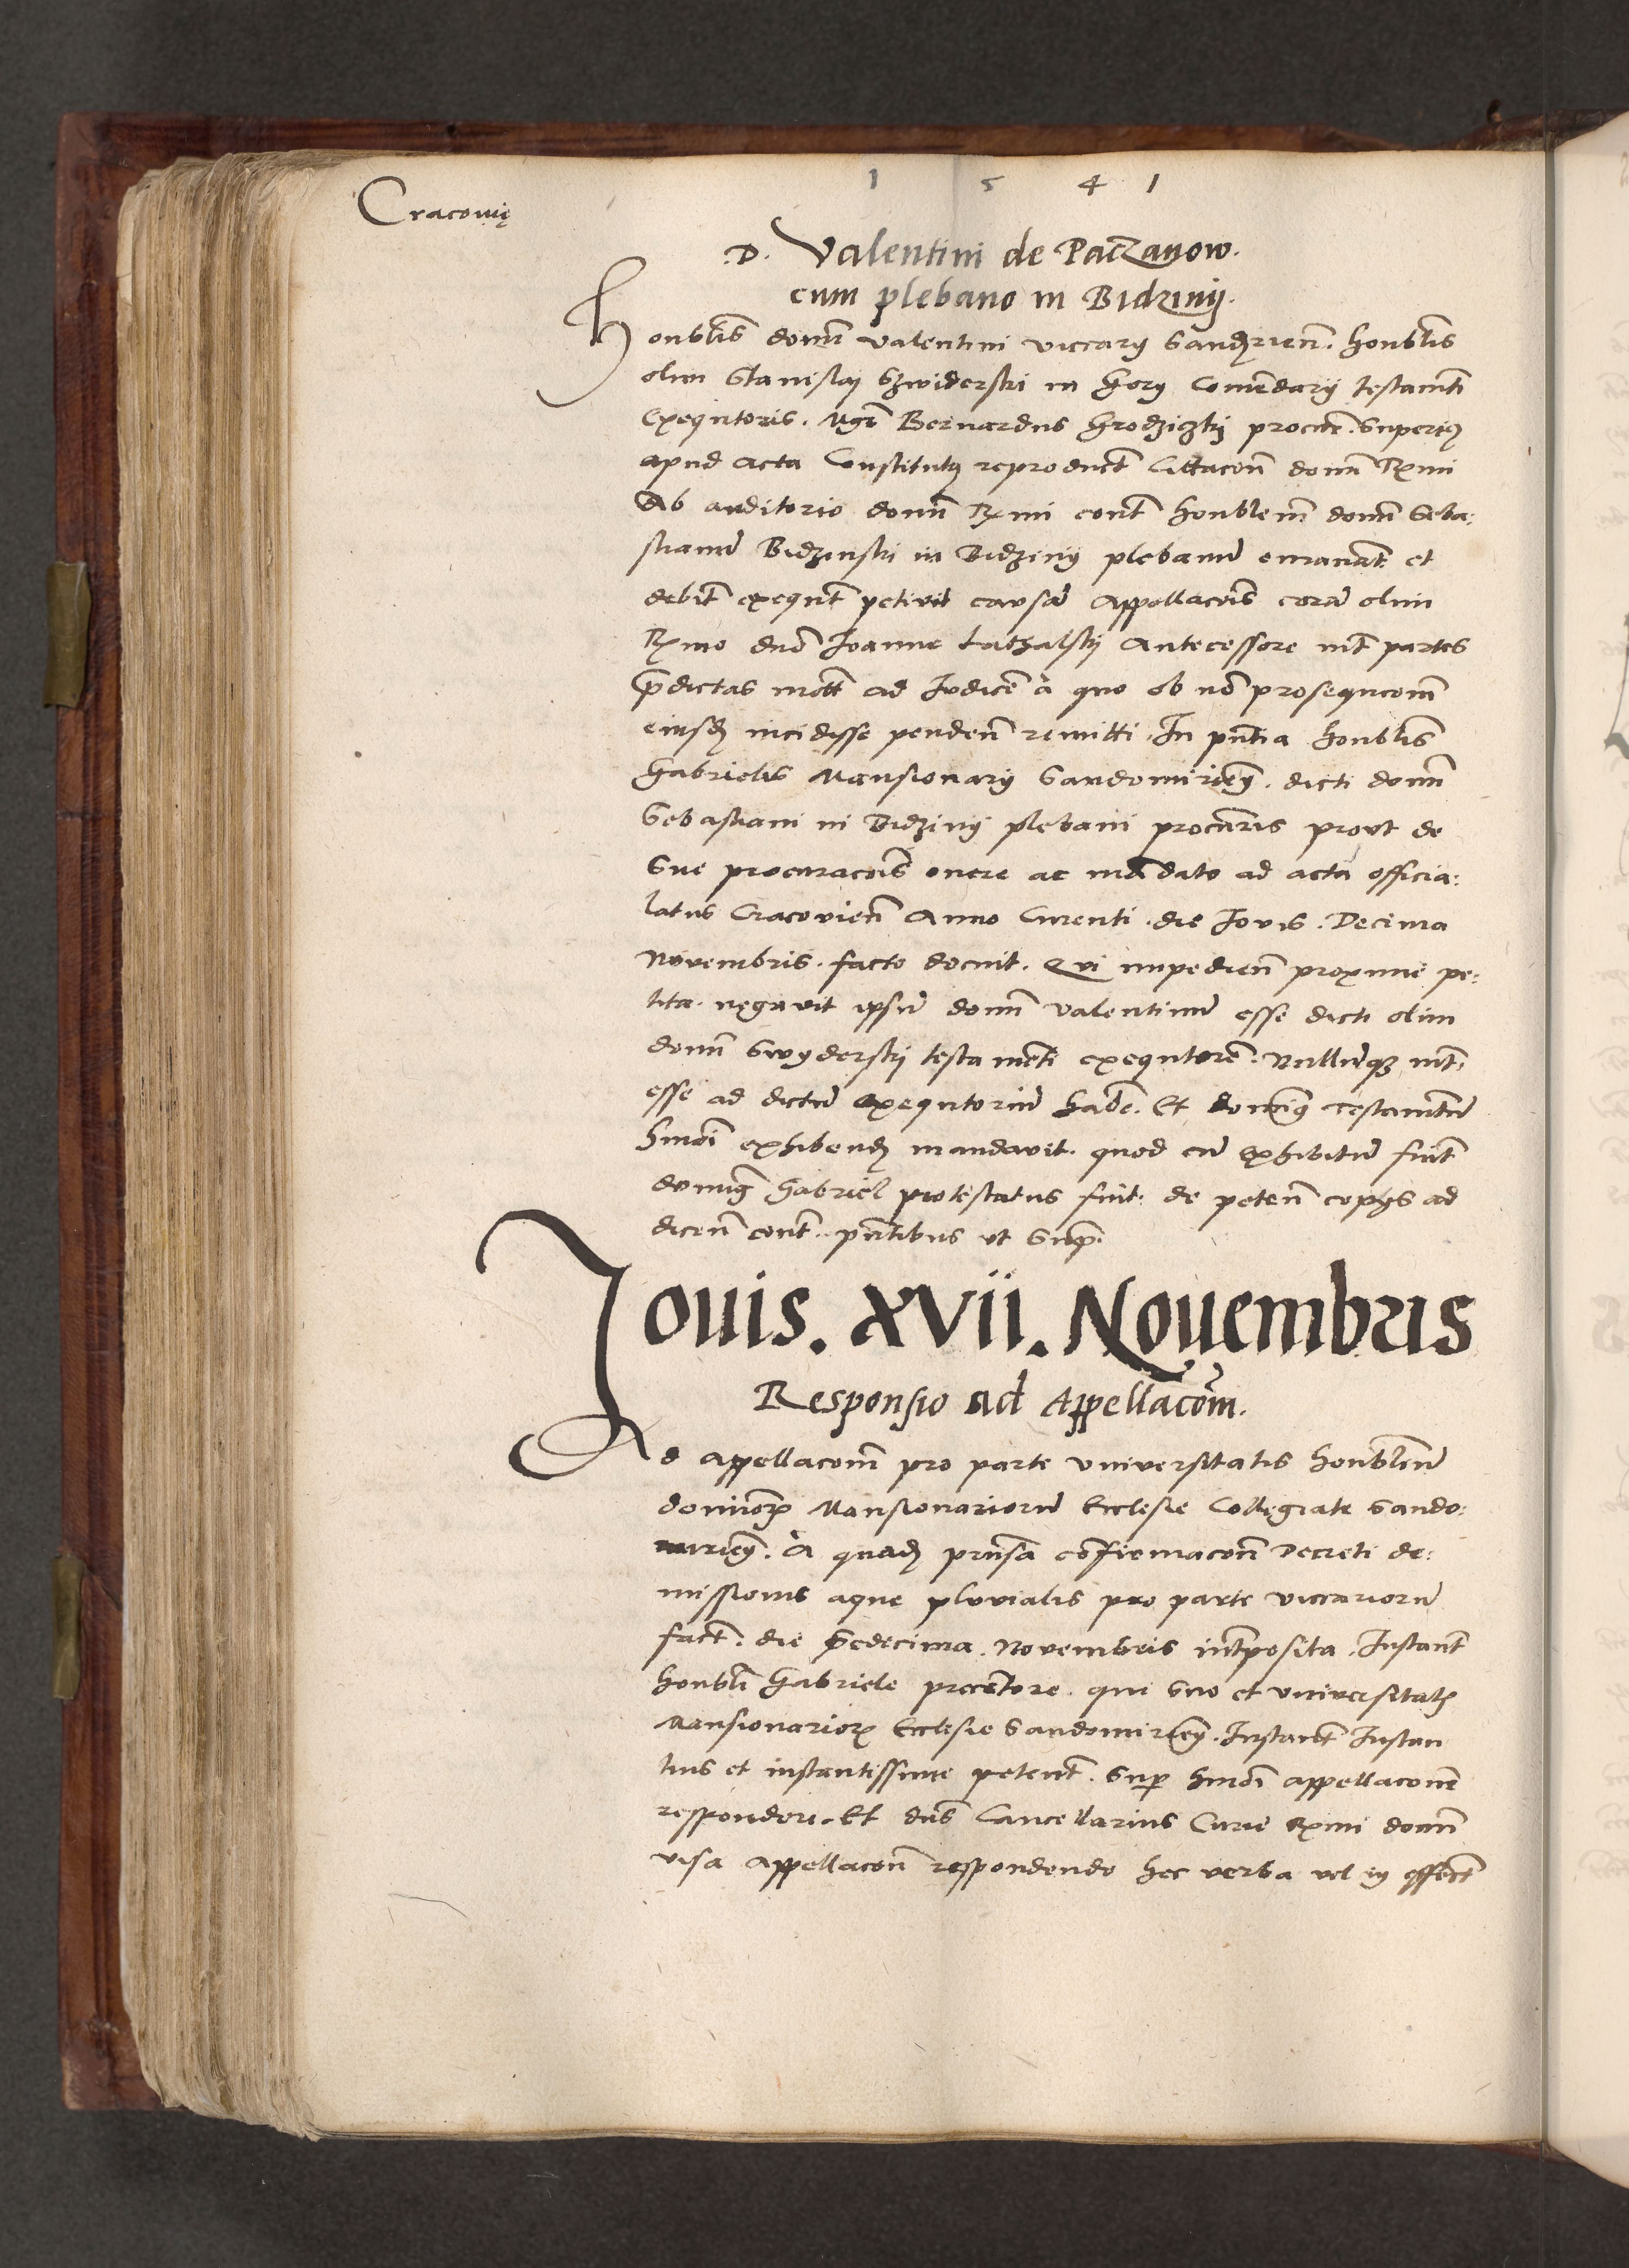 1 5 4 1
Cracovię
.D. Valentini de Paczanow.
cum plebano in Bidziny.
Honblis domi Valentini viccarij Sandzien. honblis
olim Stanislaj Szwiderski in Gory Comendarij testamti
Exequtoris. Mgr Bernardus Grodziczki procur. Superiq
apud acta Constitutq reproduct Citacon domi Rmi
Ab auditorio domi Rmi cont honblem domi Seba:
stianu Bidzinski in Bidziny plebanum emanat et
debit exequt petivit causa Appellacois cora olim
Rmo dno Joanne Lathalskj Antecessore int partes
pdictas mott ad Judice a quo ob no prosequcom
eiusd incidisse penden remitti. In pntia honblis
Gabrielis Mansionarij Sandomirien. dicti domi
Sebastiani in Bidziny plebani procuris prout de
Sue procuracois onere ac madato ad acta officia:
latus Cracovien Anno Curenti. die Jovis. Decima
Novembris. facto docuit. Qui impedien proxime pe:
tita. negavit ipsu domi Valentinu esse dicti olim
domi Swyderskj testamenti exequtore. Nulluqz int
esse ad dictu exequtoriu habe. Et dominq testamtu
hmoi exhibend mandavit. quod cu exhibitu fuit
dominq Gabriel protestatus fuit. de peten copijs ad
dicen cont. pntibus ut Sup.
Jouis. XVII. Nouembris
Responsio ad Appellacom.
Ad appellacom pro parte universitatis honblium
dominor Mansionarioru Ecclesie Collegiate Sando:
mirien. A quad prnsa cofirmacon Decreti de:
missionis aque pluvialis pro parte viccarioru
fact. die pdecima. Novembris intposita. Instant
honbli Gabriele precetore. qui suo et universitatq
Mansionarior Ecclesie Sandomirien. Instant Instan
tius et instantissime petent. Sup hmoi appellacone
respondere. Et dns Cancellarius Curie Rmi domi
visa Appellacon respondendo hec verba vel in effect